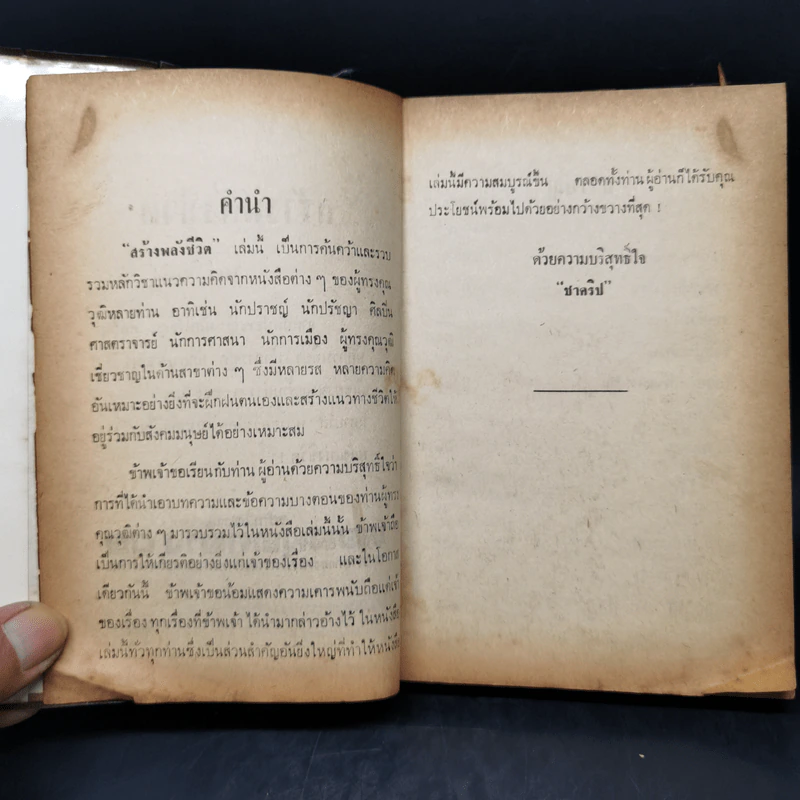 คำนำ
“สร้างพลังชีวิต” เล่มนี้ เป็นการค้นคว้าและรวบ
รวมหลักวิชาแนวความคิดจากหนังสือต่าง ๆ ของผู้ทรงคุณ
วุฒิหลายท่าน อาทิเช่น นักปราชญ์ นักปรัชญา ศิลปิน
ศาสตราจารย์ นักการศาสนา นักการเมือง ผู้ทรงคุณวุฒิ
เชี่ยวชาญในด้านสาขาต่าง ๆ ซึ่งมีหลายรส หลายความคิด
อันเหมาะอย่างยิ่งที่จะฝึกฝนตนเองและสร้างแนวทางชีวิตให้
อยู่ร่วมกับสังคมมนุษย์ได้อย่างเหมาะสม
ข้าพเจ้าขอเรียนกับท่านผู้อ่านด้วยความบริสุทธิ์ใจว่า
การที่ได้นำเอาบทความและข้อความบางตอนของท่านผู้ทรง
คุณวุฒิต่าง ๆ มารวบรวมไว้ในหนังสือเล่มนี้นั้น ข้าพเจ้าถือ
เป็นการให้เกียรติอย่างยิ่งแก่เจ้าของเรื่อง และในโอกาส
เดียวกันนี้ ข้าพเจ้าขอน้อมแสดงความเคารพนับถือแด่เจ้า
ของเรื่อง ทุกเรื่องที่ข้าพเจ้า ได้นำมากล่าวอ้างไว้ ในหนังสือ
เล่มนี้ทั่วทุกท่านซึ่งเป็นส่วนสำคัญอันยิ่งใหญ่ที่ทำให้หนังสือ
เล่มนี้มีความสมบูรณ์ขึ้น ตลอดทั้งท่านผู้อ่านก็ได้รับคุณ
ประโยชน์พร้อมไปด้วยอย่างกว้างขวางที่สุด !
ด้วยความบริสุทธิ์ใจ
“ชาคริป”